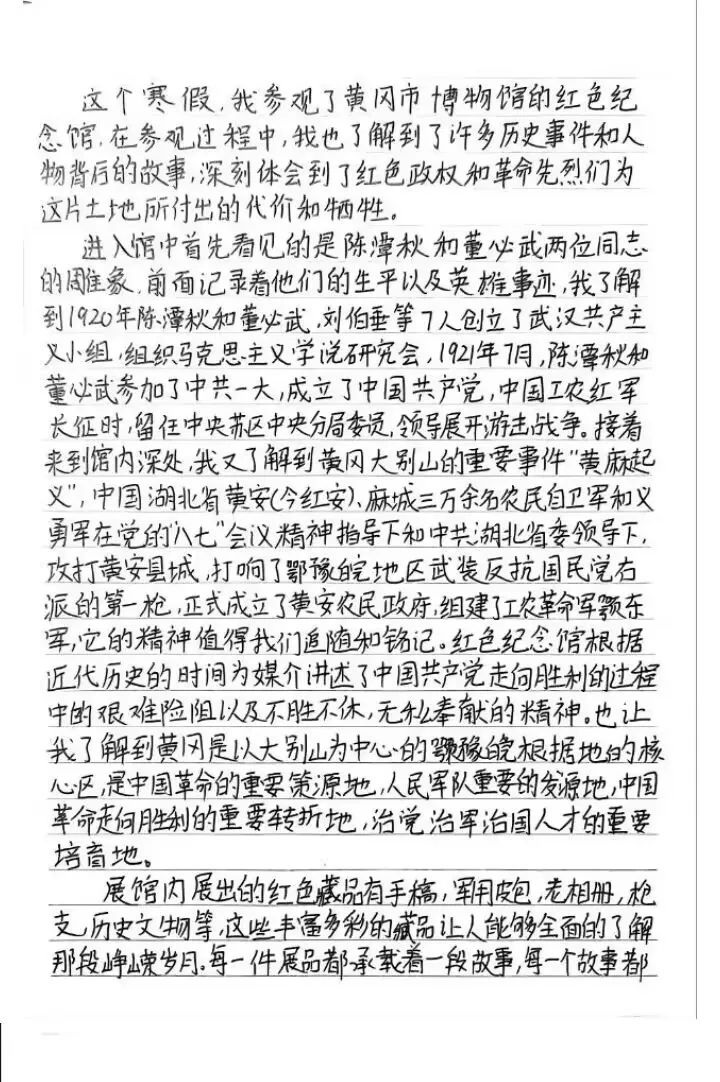 这个寒假,我参观了黄冈市博物馆的红色纪
念馆,在参观过程中,我也了解到了许多历史事件和人
物背后的故事,深刻体会到了红色政权和革命先烈们为
这片土地所付出的代价和牺牲。
进入馆中首先看见的是陈潭秋和董必武两位同志
的雕象,前面记录着他们的生平以及英雄事迹,我了解
到1920年陈潭秋和董必武,刘伯垂等7人创立了武汉共产主
义小组,组织马克思主义学说研究会,1921年7月,陈潭秋和
董必武参加了中共一大,成立了中国共产党,中国工农红军
长征时,留任中央苏区中央分局委员,领导展开游击战争。接着
来到馆内深处,我又了解到黄冈大别山的重要事件"黄麻起
义",中国湖北省黄安(今红安)、麻城三万余名农民自卫军和义
勇军在党的"八七"会议精神指导下和中共湖北省委领导下,
攻打黄安县城,打响了鄂豫皖地区武装反抗国民党右
派的第一枪,正式成立了黄安农民政府,组建了工农革命军鄂东
军,它的精神值得我们追随和铭记。红色纪念馆根据
近代历史的时间为媒介讲述了中国共产党走向胜利的过程
中的艰难险阻以及不胜不休,无私奉献的精神。也让
我了解到黄冈是以大别山为中心的鄂豫皖根据地的核
心区,是中国革命的重要策源地,人民军队重要的发源地,中国
革命走向胜利的重要转折地,治党治军治国人才的重要
培育地。
展馆内展出的红色藏品有手稿,军用皮包,老相册,枪
支,历史文物等,这些丰富多彩的藏品让人能够全面的了解
那段峥嵘岁月。每一件展品都承载着一段故事,每一个故事都